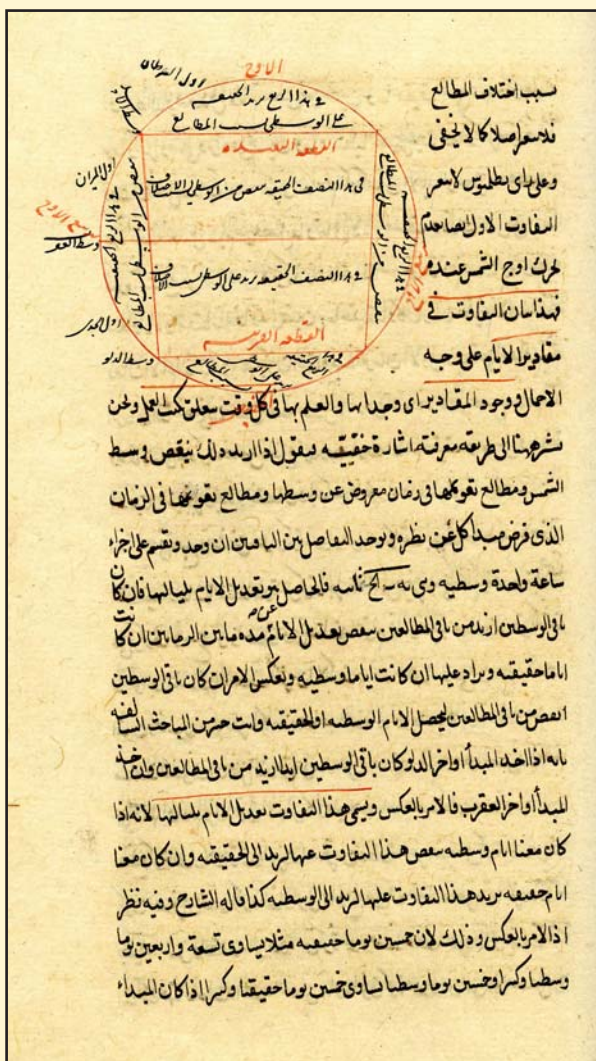 الاوج
اول السرطان
وسط الاسد
في هذا الربع يزيد الحقيقيه
على الوسطى بسبب المطالع
القطعة البعيده
اول الميزان
في هذا النصف الحقيقيه ينقص من الوسطى بسبب الاختلاف
وسط العقرب
في هذا النصف الحقيقيه يزيد على الوسطى بسبب الاختلاف
القطعة القريبه
اول الجدى
وسط الدلو
سبب اختلاف المطالع
فلا يتغير اصلا كما لا يخفى
وعلى راى بطلميوس لا يتغير
التفاوت الاول ايضا لعدم
تحرك اوج الشمس عنده
فهذا بيان التفاوت في
مقادير الايام على وجه
الاجمال ووجود المقادير اى وجدانها والعلم بها فى كل وقت يتعلق بكتب العمل ونحن
نشير ههنا الى طريقه معرفته اشارة خفيفه فنقول اذا اريد ذلك ينقص وسط
الشمس ومطالع تقويمها فى زمان مفروض عن وسطها ومطالع تقويمها فى الزمان
الذى فرض مبدأ كل عن نظيره ويوخذ التفاضل بين الباقيين ان وجد ويقسم على اجزاء
ساعة واحدة وسطيه وهى فالحاصل هو تعديل الايام بلياليها فان كان
باقى الوسطين ازيد من باقى المطالعين ينقص تعديل الايام عن مده ما بين الزمانين ان كانت
اياما حقيقيه ويزاد عليها ان كانت اياما وسطيه وبعكس الامر ان كان باقى الوسطين
انقص من باقى المطالعين ليحصل الايام الوسطيه او الحقيقيه وانت خبير من المباحث السالفه
بانه اذا اخذ المبدأ اواخر الدلو كان باقى الوسطين ابدا ازيد من باقى المطالعين وان اخذ
المبدأ اواخر العقرب فالامر بالعكس ويسمى هذا التفاوت تعديل الايام بلياليها لانه اذا
كان معنا ايام وسطيه ينقص هذا التفاوت عنها لترد الى الحقيقيه وان كان معنا
ايام حقيقيه يزيد هذا التفاوت عليها لترد الى الوسطيه كذا قاله الشارح وفيه نظر
اذ الامر بالعكس وذلك لان خمسين يوما حقيقيه مثلا يساوى تسعة واربعين يوما
وسطيا وكسرا وخمسين يوما وسطيا يساوى خمسين يوما حقيقيا وكسرا اذا كان المبداء